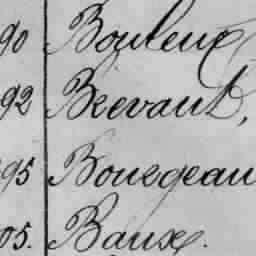 90 Bouleux
92 Brevant,
95 Bourgeau
05. Baux.